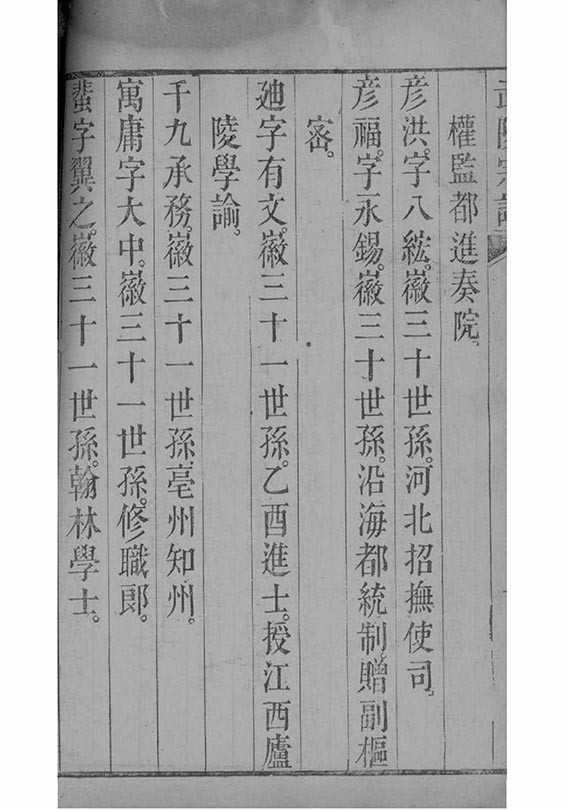 權監都進奏院。
彦洪。字八紘。徽三十世孫。河北招撫使司。
彦福。字永錫。徽三十世孫。沿海都統制。贈副樞
密。
廸字有文。徽三十一世孫。乙酉進士。授江西廬
陵學諭。
千九承務。徽三十一世孫。亳州知州。
寓庸字大中。徽三十一世孫。修職郎。
蜚字翼之。徽三十一世孫。翰林學士。